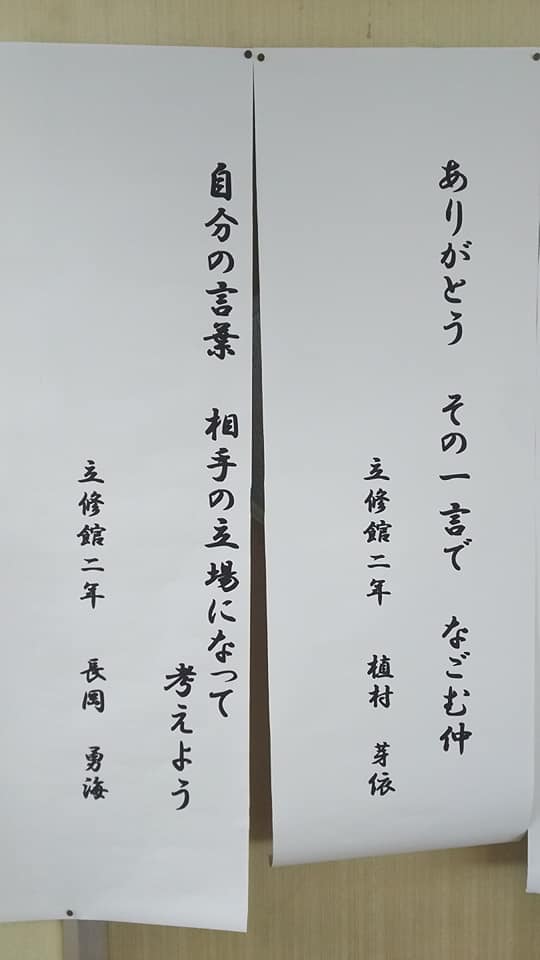 ありがとう　その一言で　なごむ仲
立修館二年　植村　芽依
自分の言葉　相手の立場になって
考えよう
立修館二年　長岡　勇海